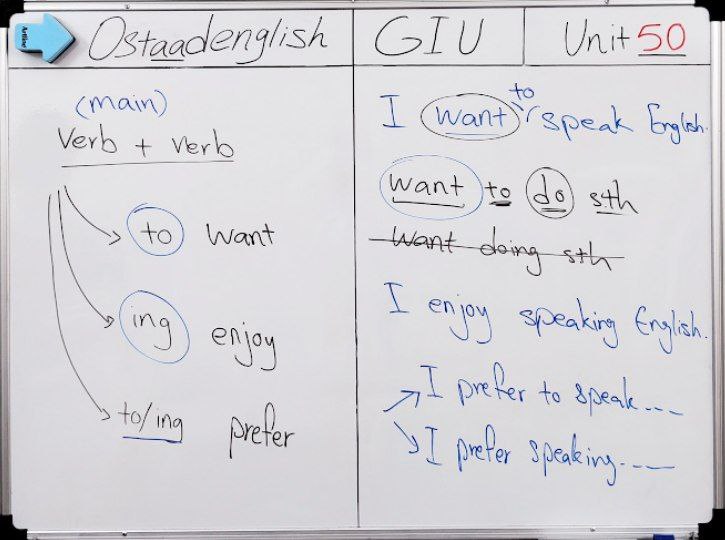 Ostaadenglish
GIU
Unit 50
(main)
Verb + verb
to want
ing enjoy
to/ing prefer
I want to speak English.
want to do sth
Want doing sth
I enjoy speaking English.
I prefer to speak....
I prefer speaking....